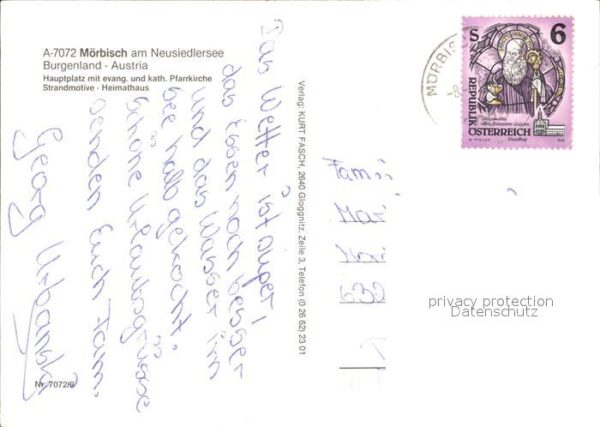 A-7072 Mörbisch am Neusiedlersee
Burgenland · Austria
Hauptplatz mit evang. und kath. Pfarrkirche
Strandmotive · Heimathaus
Das Wetter ist super!
das Essen noch besser
und das Wasser im
See halb gekocht.
Schöne Urlaubsgrüsse
senden Euch Fam.
Georg Urbanski
Nr. 7072/6
Verlag: KURT FASCH, 2640 Gloggnitz, Zeile 3, Telefon (0 26 62) 23 01
MÖRBIS
S 6
REPUBLIK
ÖSTERREICH
Fami
Mar
632
privacy protection
Datenschutz